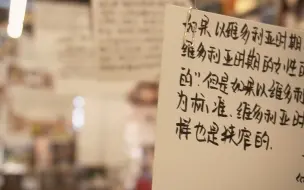 如果以维多利亚时期
维多利亚时期的女性
的”但是如果以维多
为标准、维多利亚时
样也是狭窄的.